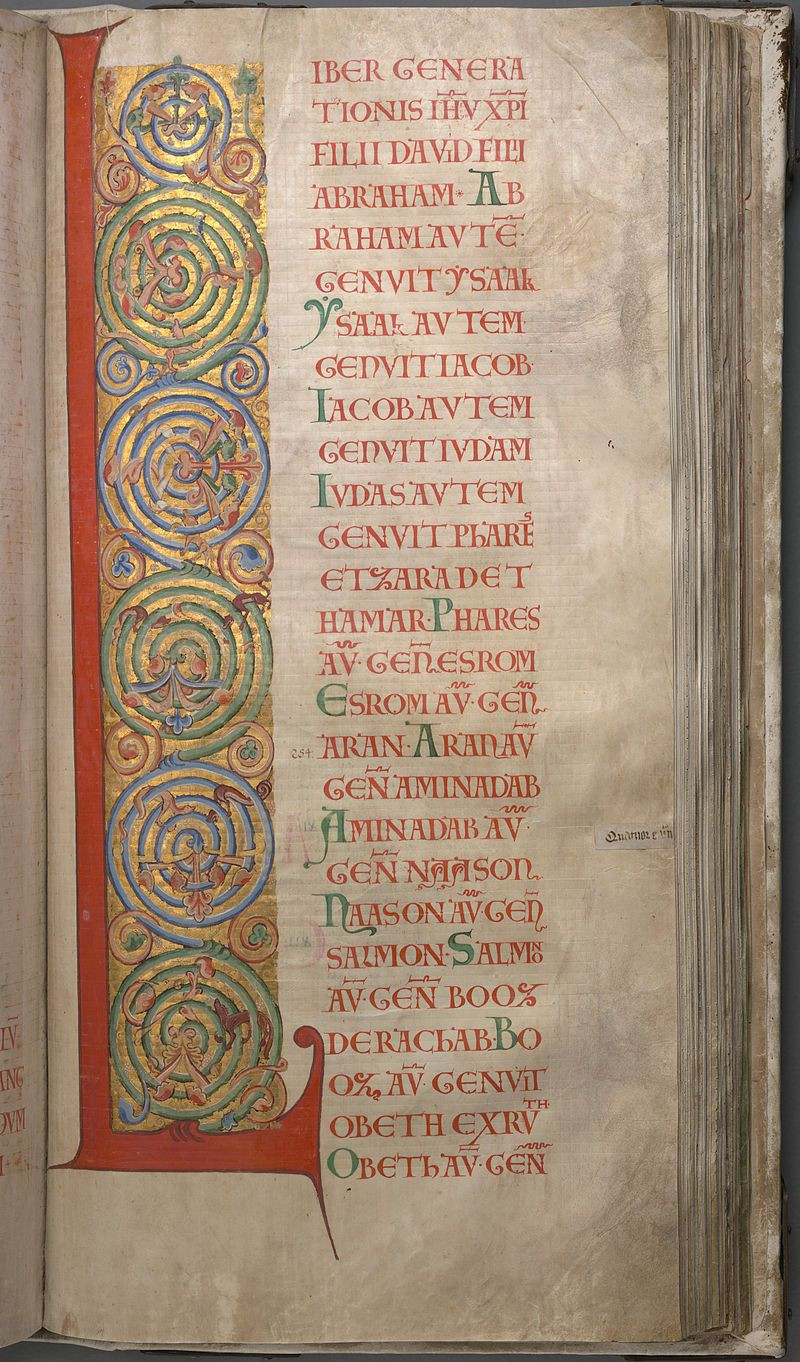 LIBER GENERA
TIONIS IH̅V XP̅I
FILII DAVID FILII
ABRAHAM· AB
RAHAM AVTE̅·
GENVIT YSAAK
YSAAK AVTEM
GENVIT IACOB·
IACOB AVTEM
GENVIT IVDAM
IVDAS AVTEM
GENVIT PHARES
ET ZARA DE T
HAMAR· PHARES
AV̅· GEN̅ ESROM
ESROM AV̅· GEN̅·
254·
ARAN· ARAN AV̅
GEN̅ AMINADAB
AMINADAB AV̅·
GEN̅ NAASON·
NAASON AV̅· GEN̅
SALMON· SALMO̅
AV̅· GEN̅ BOOZ
DE RACHAB· BO
OZ· AV̅· GENVIT
OBETH EX RVTH
OBETH AV̅· GEN̅
LV̅
ANG
DVM